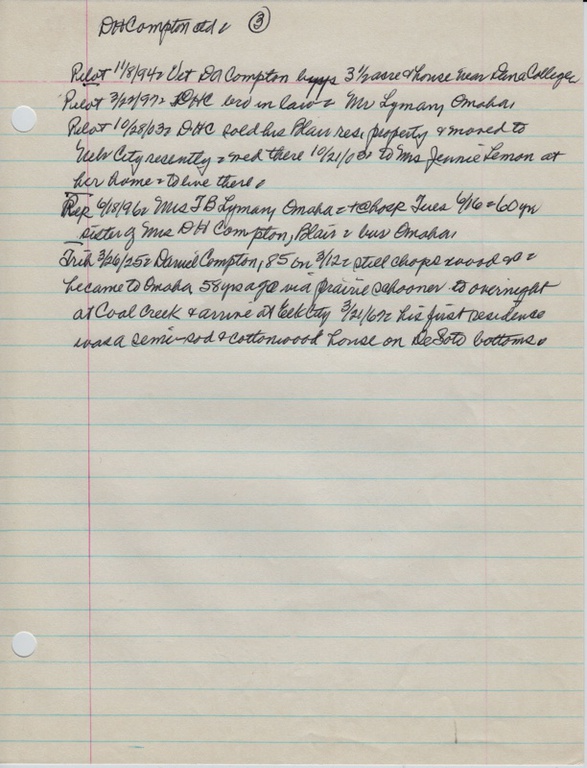 DH Compton ctd = ③
Pilot 11/8/94 = Vet DH Compton buys 3 1/2 acre & house near Dana College
Pilot 3/27/97 = DHC bro in law = Mr Lyman, Omaha
Pilot 10/28/03 = DHC sold his Blair resi property & moved to
Neb City recently = wed there 10/21/03 to Ms Jennie Lemon at
her home = to live there.
Rep 6/18/96 = Mrs TB Lyman, Omaha = + @ hosp Tues 6/16 = 60 yrs
sister of Mrs DH Compton, Blair = bur Omaha
Trib 3/26/25 = Daniel Compton, 85 on 3/12 = still chops wood &c =
he came to Omaha 58 yrs ago via prairie schooner to overnight
at Coal Creek & arrive at Elk City 3/21/67 = his first residence
was a semi-sod & cottonwood house on DeSoto bottoms.